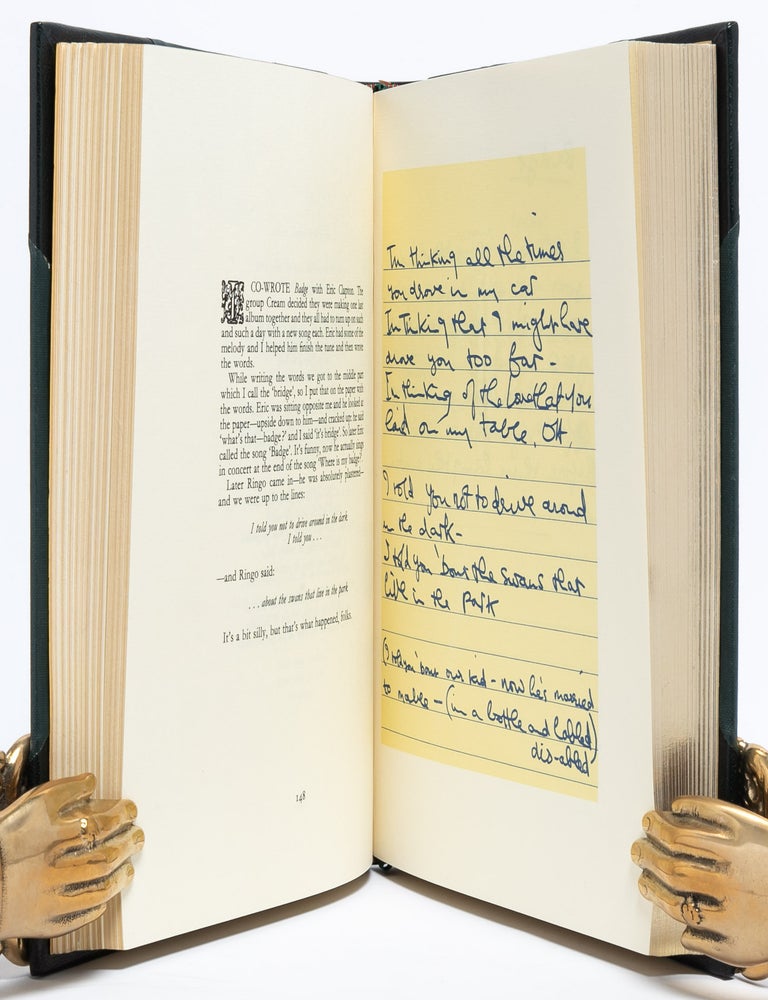 I CO-WROTE Badge with Eric Clapton. The
group Cream decided they were making one last
album together and they all had to turn up on such
and such a day with a new song each. Eric had some of the
melody and I helped him finish the tune and then wrote
the words.
While writing the words we got to the middle part
which I call the 'bridge', so I put that on the paper with
the words. Eric was sitting opposite me and he looked at
the paper—upside down to him—and cracked up; he said
'what's that—badge?' and I said 'it's bridge'. So later Eric
called the song 'Badge'. It's funny, now he actually sings
in concert at the end of the song 'Where is my badge?'
Later Ringo came in—he was absolutely plastered—
and we were up to the lines:
I told you not to drive around in the dark
I told you . . .
—and Ringo said:
. . . about the swans that live in the park
It's a bit silly, but that's what happened, folks.
148
I'm thinking all the times
you drove in my car
I'm Thinking that I might have
drove you too far -
I'm thinking of the love that you
laid on my table, OH,
I told you not to drive around
in the dark -
I told you 'bout the swans that
live in the park
(I told you 'bout our kid - now he's married
to mable - (in a bottle and labled)
dis-abled